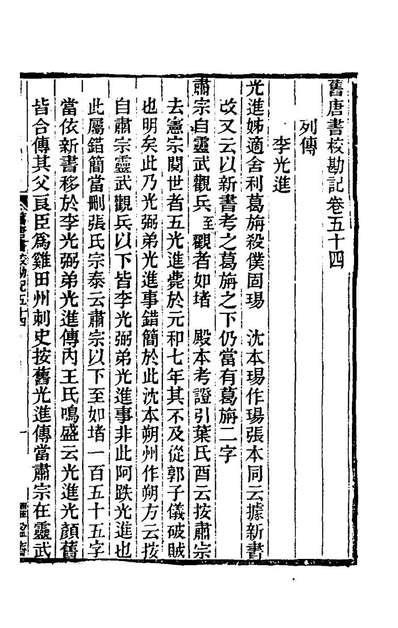 舊唐書校勘記卷五十四
列傳
李光進
光進姊適舍利葛旃殺僕固瑒　沈本瑒作瑒張本同云據新書
改又云以新書考之葛旃之下仍當有葛旃二字
肅宗自靈武觀兵至觀者如堵　殿本考證引葉氏酉云按肅宗
去憲宗閱世者五光進薨於元和七年其不及從郭子儀破賊
也明矣此乃光弼弟光進事錯簡於此沈本朔州作朔方云按
自肅宗靈武觀兵以下皆李光弼弟光進事非此阿跌光進也
此屬錯簡當刪張氏宗泰云肅宗以下至如堵一百五十五字
當依新書移於李光弼弟光進傳內王氏鳴盛云光進光顏舊
皆合傳其父良臣為雞田州刺史按舊光進傳當肅宗在靈武